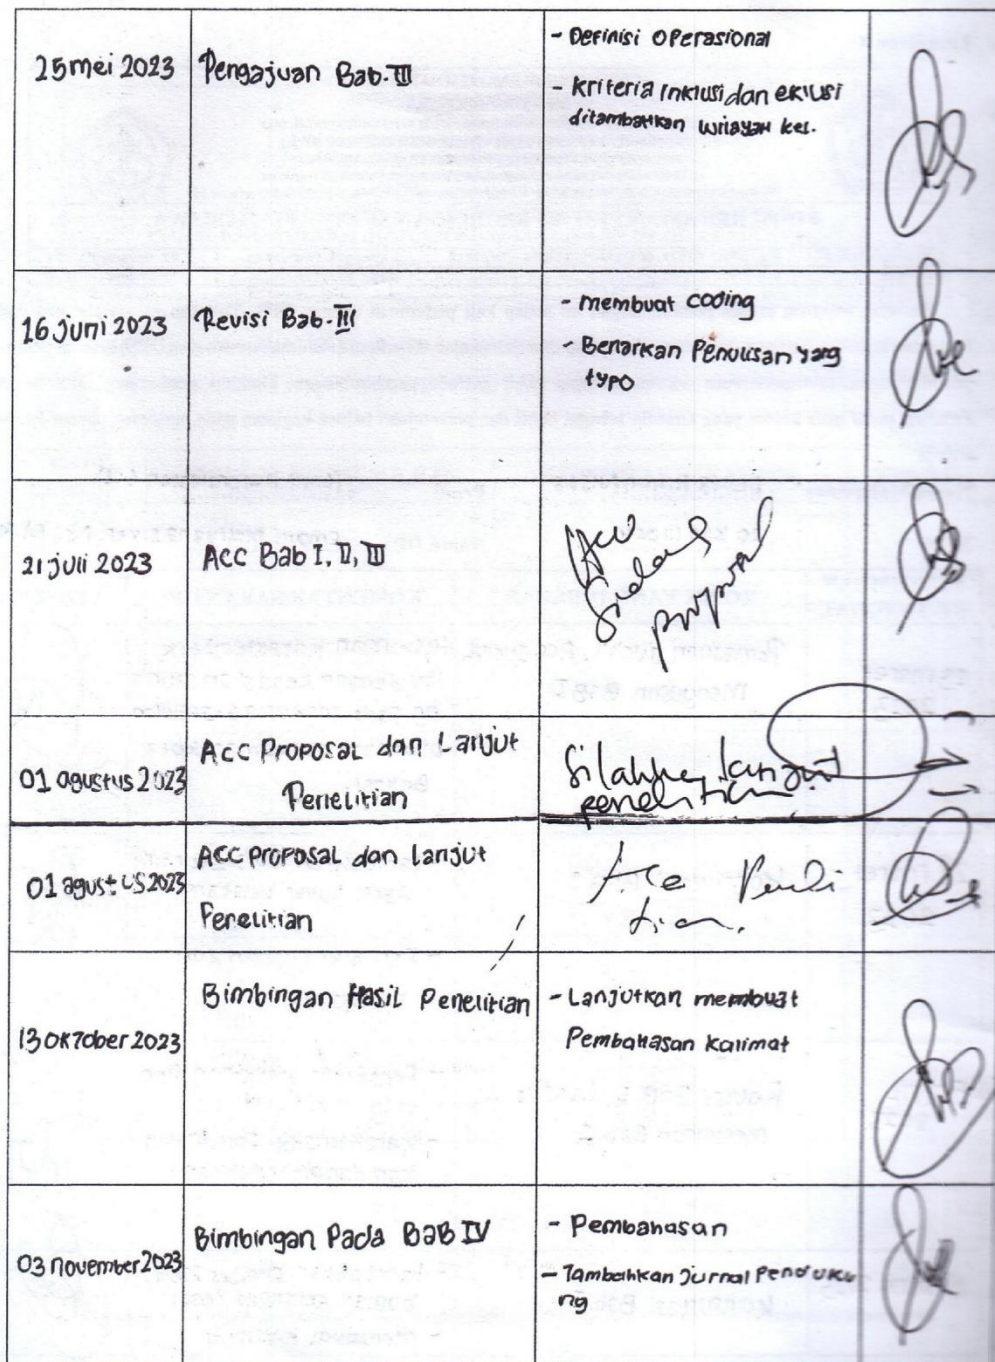 25 mei 2023
Pengajuan Bab. III
- Definisi Operasional
- Kriteria inklusi dan eklusi
ditambahkan wilayah kel.
16 Juni 2023
Revisi Bab. III
- membuat coding
- Benarkan Penulisan yang
typo
21 Juli 2023
ACC Bab I, II, III
Acc
Sidang
proposal
01 agustus 2023
ACC Proposal dan Lanjut
Penelitian
Silahkan lanjut
penelitian
01 agustus 2023
ACC Proposal dan lanjut
Penelitian
13 Oktober 2023
Bimbingan Hasil Penelitian
- Lanjutkan membuat
Pembahasan Kalimat
03 november 2023
Bimbingan Pada BAB IV
- Pembahasan
- Tambahkan Jurnal Penduku
ng